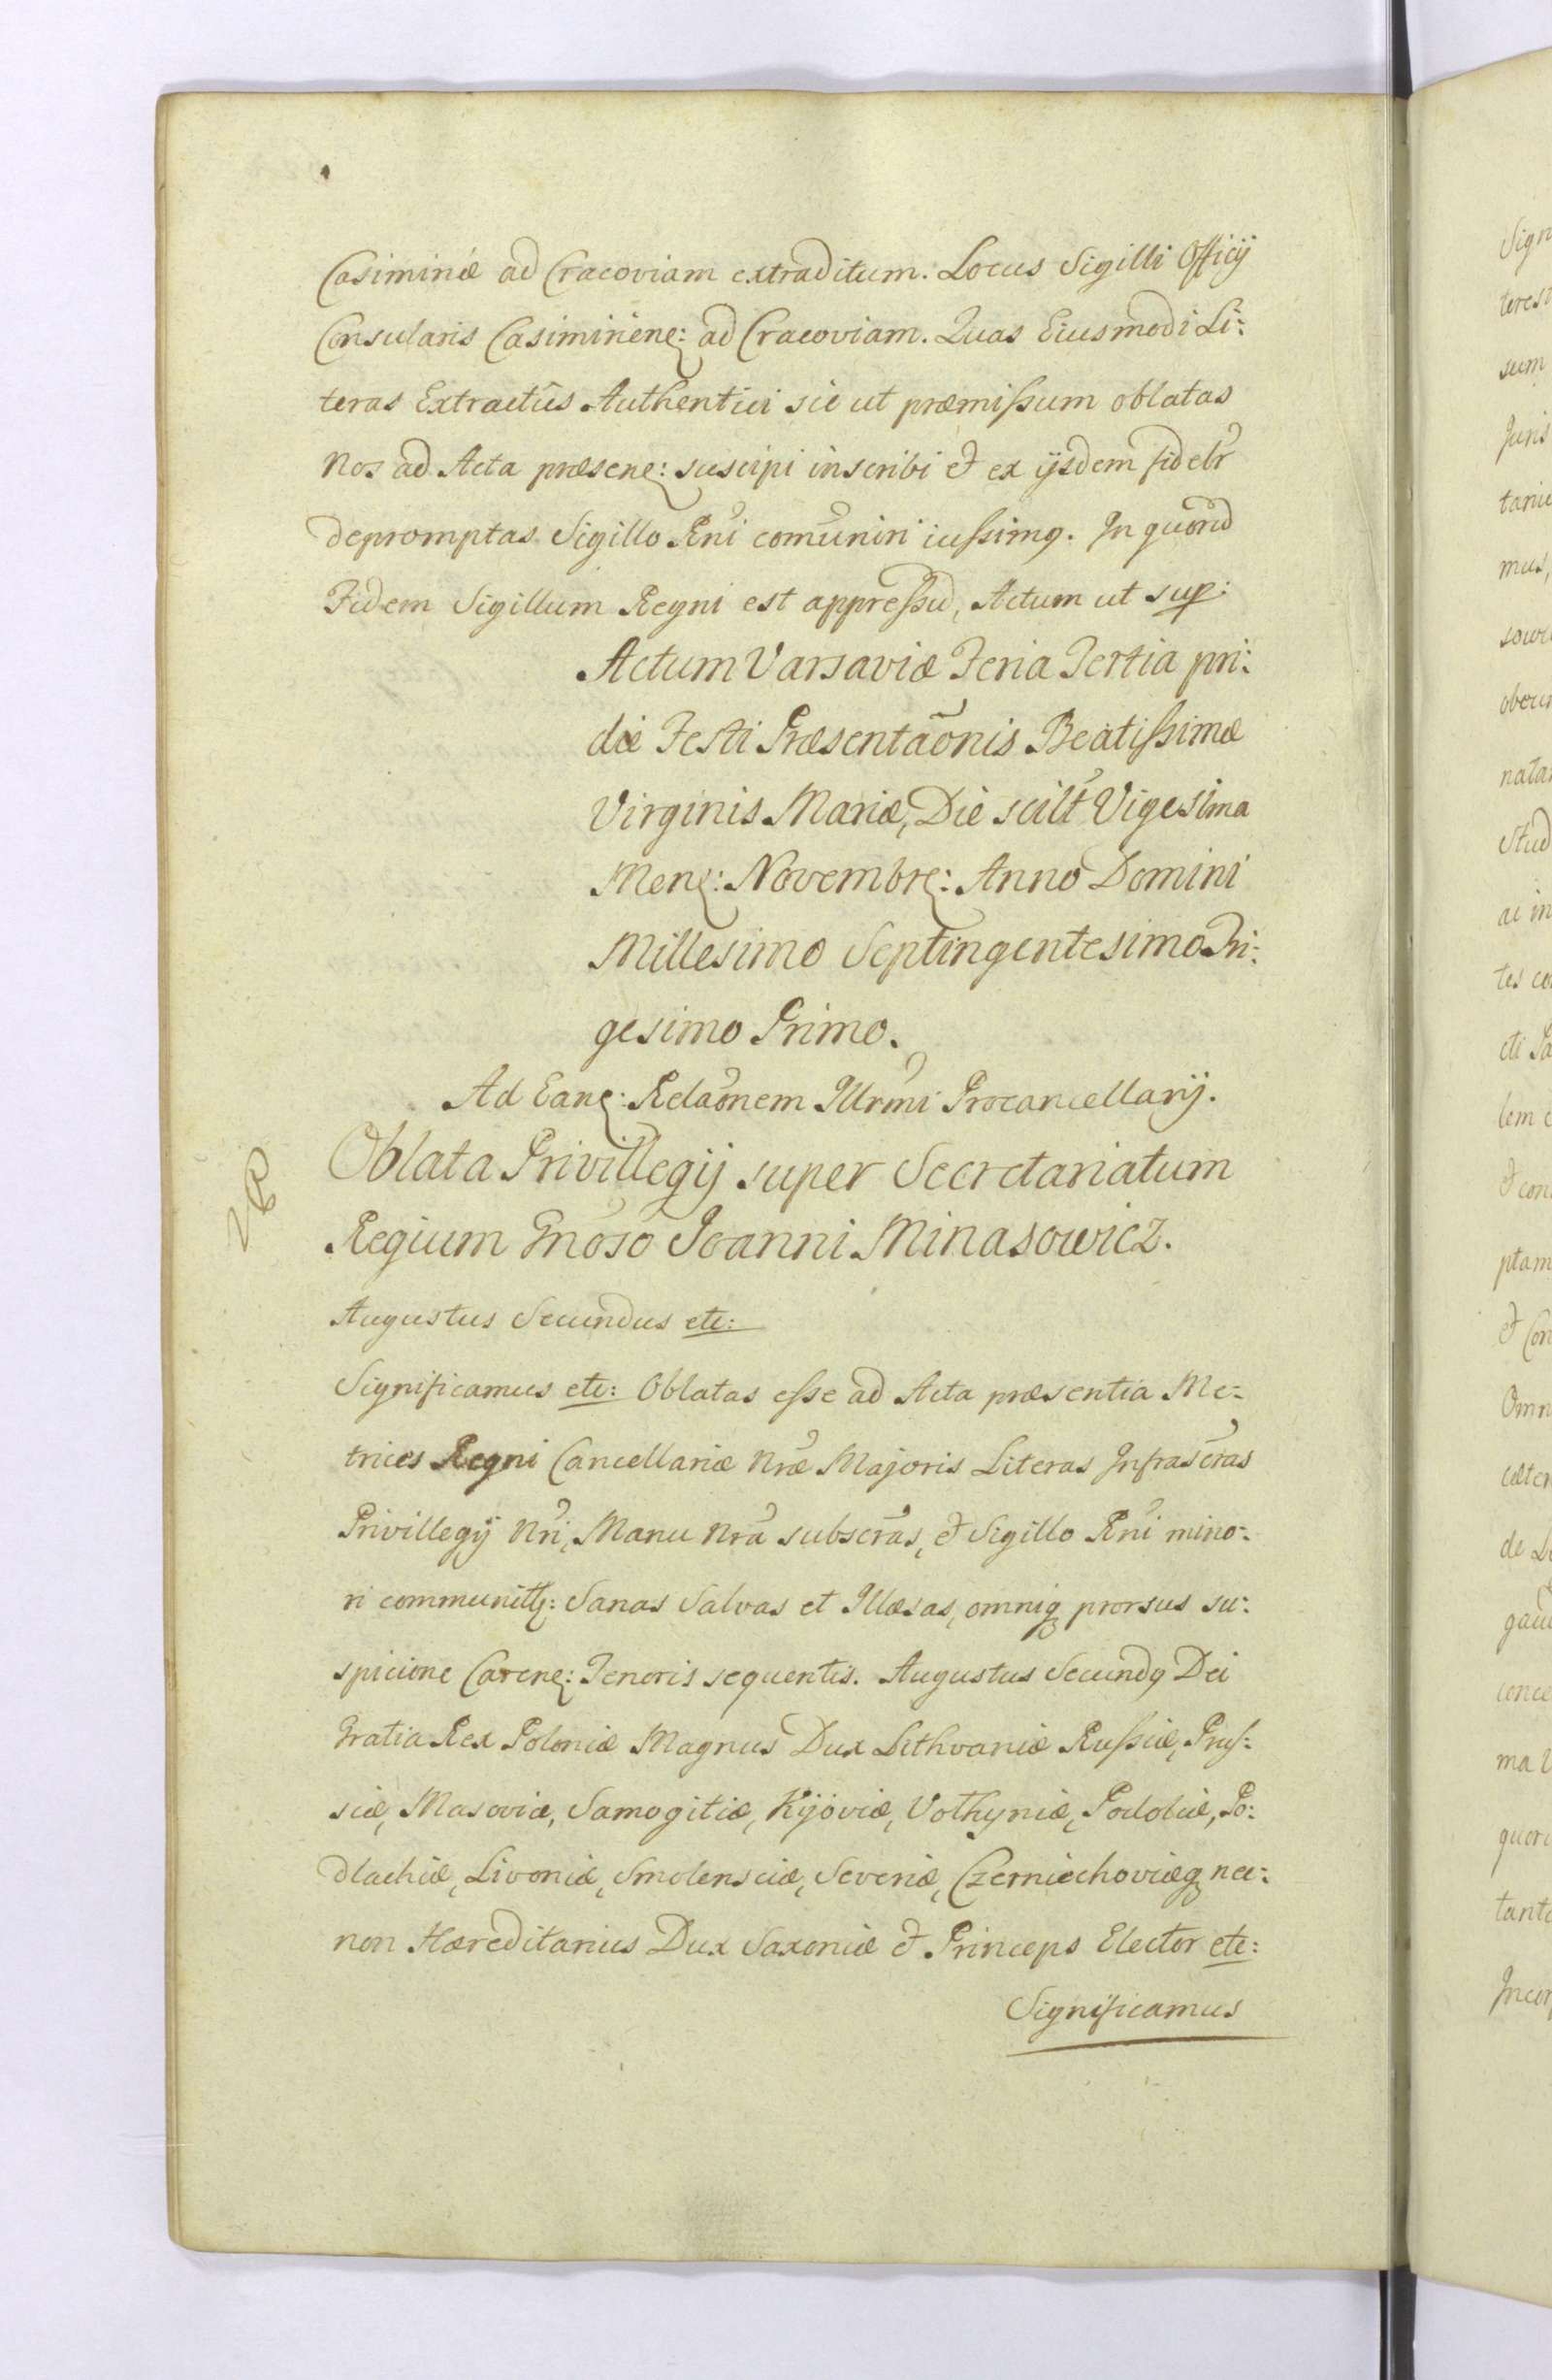 Casimiriæ ad Cracoviam extraditum. Locus Sigilli Officÿ
Consularis Casimirien: ad Cracoviam. Quas Eiusmodi Li:
teras Extractûs Authentici sic ut præmissum oblatas
Nos ad Acta præsen: suscipi inscribi et ex ijsdem fidelr
depromptas Sigillo Rni comuniri iussimq. In quorũ
Fidem Sigillum Regni est appressũ, Actum ut sup:
Actum Varsaviæ Feria Tertia pri:
die Festi Præsentaõnis Beatissimæ
Virginis Mariæ, Die scilt Vigesima
Men: Novembr: Anno Domini
Millesimo Septingentesimo Tri:
gesimo Primo.
Ad Ean: Relaõnem Illrmi Procancellarÿ.
Oblata Privillegÿ super Secretariatum
Regium Gnoso Joanni Minasowicz.
Augustus Secundus etc:
Significamus etc: Oblatas esse ad Acta præsentia Me:
trices Regni Cancellariæ Nræ Majoris Literas Infrascras
Privillegÿ Nri, Manu Nra subscras, et Sigillo Rni mino:
ri communit: Sanas Salvas et Illæsas, omniq prorsus su:
spicione Caren: Tenoris sequentis. Augustus Secundq Dei
Gratia Rex Poloniæ Magnus Dux Lithvaniæ Russiæ, Prus:
siæ, Masoviæ, Samogitiæ, Kijoviæ, Volhyniæ, Podoliæ, Po:
dlachiæ, Livoniæ, Smolensciæ, Severiæ, Czerniechoviæq nec:
non Hæreditarius Dux Saxoniæ et Princeps Elector etc:
Significamus